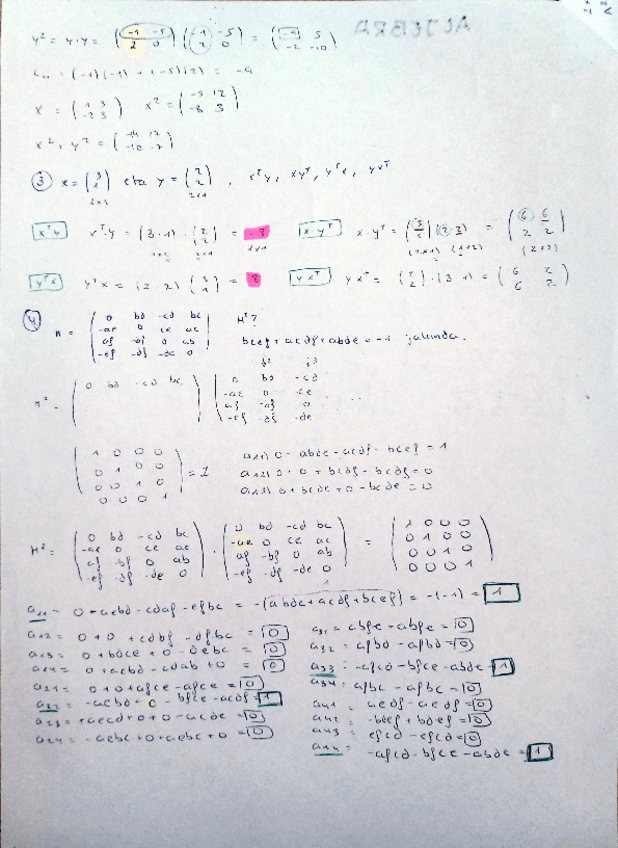 y² = y·y = (-1 -5 / 2 0) (-1 -5 / 2 0) = (-9 5 / -2 -10)
(-1)(-1) + (-5)(2) = -9
x = (1 3 / -2 3) x² = (-5 12 / -8 3)
③ x = (3 / 1) eta y = (2 / 2), xᵀy, xyᵀ, yᵀx, yxᵀ
2x1 2x1
xᵀy xᵀ·y = (3 1)·(2 / 2) =
1x1
x·yᵀ x·yᵀ = = (6 6 / 2 2)
(2x1) (1x2) (2x2)
yᵀx yᵀx = (2 2) (3 / 1) = 8
yxᵀ yxᵀ = (2 / 2)·(3 1) = (6 2 / 6 2)
④ M = (0 bd -cd bc / -ae 0 ce ac / af -bf 0 ab / -ef -df -de 0) M²?
bcef + acdf + abde = -1 jakinda.
M² = (0 bd -cd bc) (0 bd -cd / -ae 0 ce / af -bf 0 / -ef -df -de) ...
(1 0 0 0 / 0 1 0 0 / 0 0 1 0 / 0 0 0 1) = I
a11) 0 - abde - acdf - bcef = 1
a12) 0 + 0 + bcdf - bcdf = 0
a13) 0 + bcde + 0 - bcde = 0
M² = (0 bd -cd bc / -ae 0 ce ac / af -bf 0 ab / -ef -df -de 0) · (0 bd -cd bc / -ae 0 ce ac / af -bf 0 ab / -ef -df -de 0) = (1 0 0 0 / 0 1 0 0 / 0 0 1 0 / 0 0 0 1)
a11 = 0 - aebd - cdaf - efbc = -(abde + acdf + bcef) = -(-1) = 1
a12 = 0 + 0 + cdbf - dfbc = 0
a13 = 0 + bdce + 0 - debc = 0
a14 = 0 + acbd - cdab + 0 = 0
a21 = 0 + 0 + afce - afce = 0
a22 = -aebd + 0 - bfce - acdf = 1
a23 = +aecd + 0 + 0 - acde = 0
a24 = -aebc + 0 + aebc + 0 = 0
a31 = abfe - abfe = 0
a32 = afbd - afbd = 0
a33 = -afcd - bfce - abde = 1
a34 = afbc - afbc = 0
a41 = aedf - aedf = 0
a42 = -bdef + bdef = 0
a43 = efcd - efcd = 0
-afcd - bfce - abde = 1